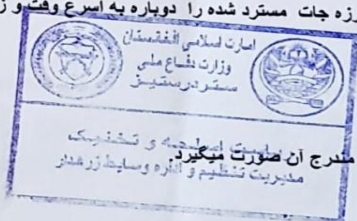 رزه جات مسترد شده را دوباره به اسرع وقت و ز
امارت اسلامی افغانستان
وزارت دفاع ملی
ستردرستیز
ریاست اسلحه و تخنیک
مندرج آن صورت میگیرد.
مدیریت تنظیم و اداره وسایط زرهدار